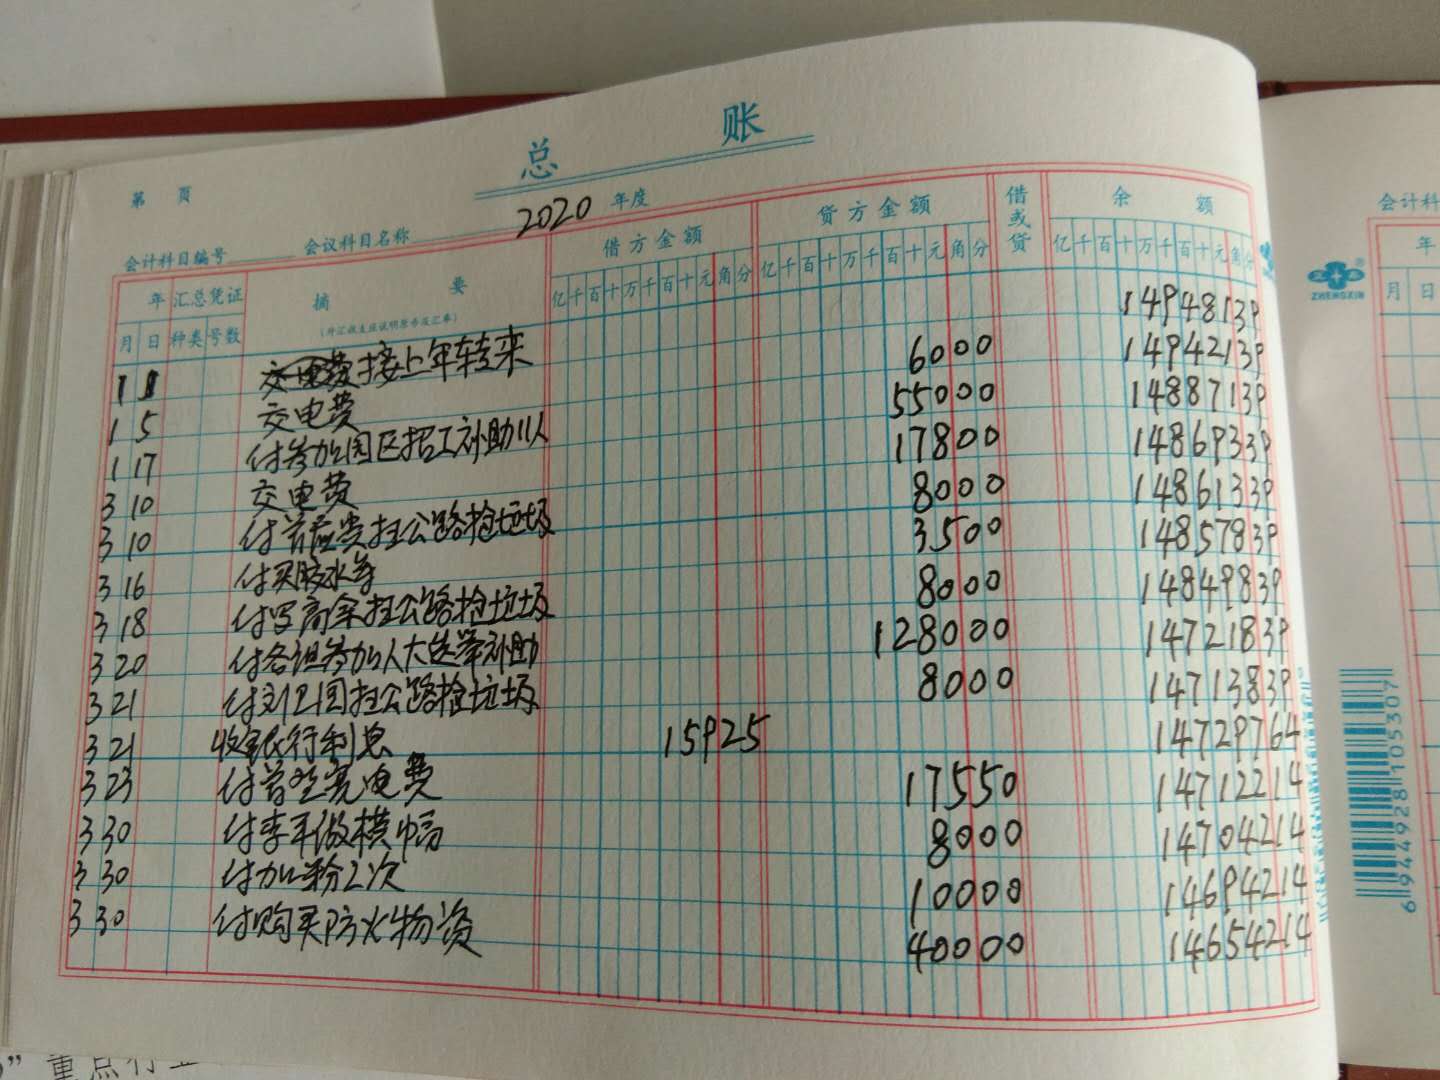 总 账
第 页
2020 年度
会计科目编号 会议科目名称
会计科
年 汇总凭证 摘 要 借方金额 贷方金额 借或贷 余 额
年
(外汇收支应说明原币及汇率)
月 日 种类 号数 亿千百十万千百十元角分 亿千百十万千百十元角分 亿千百十万千百十元角分
月 日
ZHENGXIN
1 1 交电费接上年转来 14948139
1 5 交电费 6000 14942139
1 17 付参加园区招工补助11人 55000 14887139
3 10 交电费 17800 14869339
3 10 付 扫公路捡垃圾 8000 14861339
3 16 付买胶水等 3500 14857839
3 18 付罗高余扫公路捡垃圾 8000 14849839
3 20 付各组参加人大选举补助 128000 14721839
3 21 付刘卫国扫公路捡垃圾 8000 14713839
3 21 收银行利息 15925 14729764
3 23 付 电费 17550 14712214
3 30 付李平做横幅 8000 14704214
3 30 付加粉2次 10000 14694214
3 30 付购买防火物资 40000 14654214
6944928105307
” 重点行业